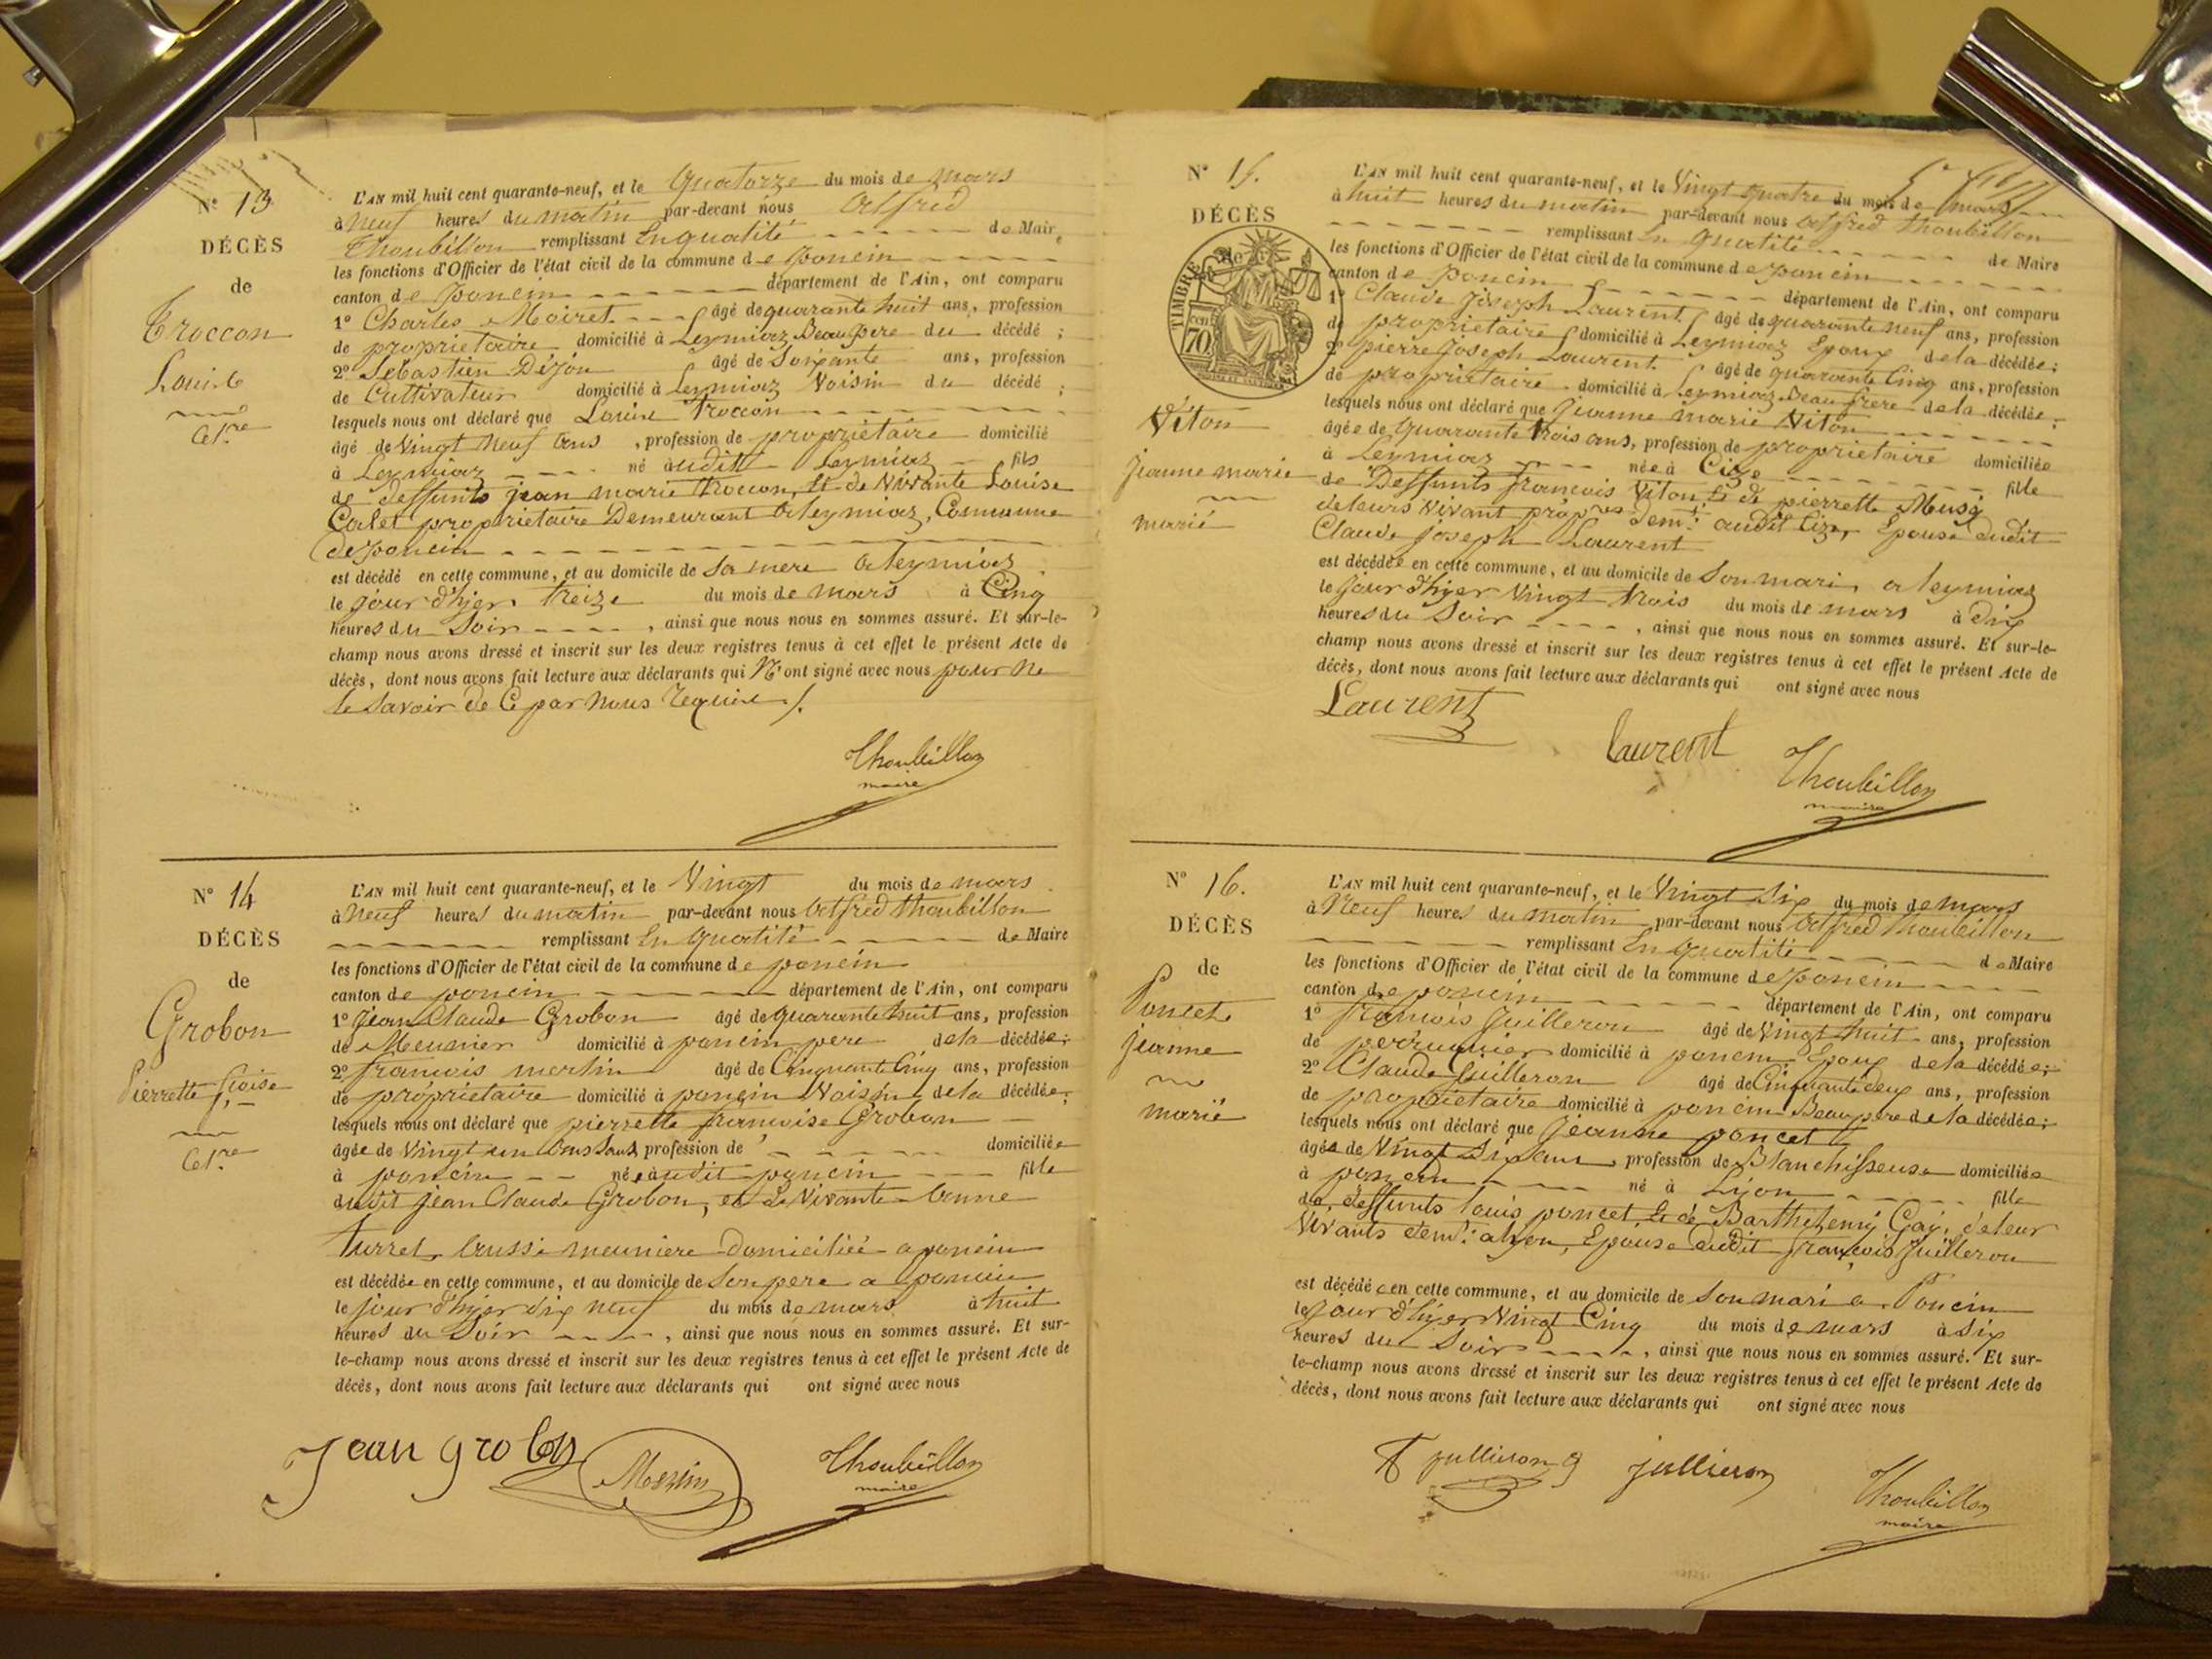 N° 13
DÉCÈS
de
Troccon
Louise
Cel.re
L'AN mil huit cent quarante-neuf, et le Quatorze du mois de mars
à neuf heures du matin par-devant nous Alfred
Thoubillon remplissant En qualité de Maire
les fonctions d'Officier de l'état civil de la commune de poncin
canton de poncin département de l'Ain, ont comparu
1° Charles Moiret âgé de quarante huit ans, profession
de propriétaire domicilié à Leymiaz Beau pere du décédé ;
2° Sébastien Déjon âgé de Soixante ans, profession
de Cultivateur domicilié à Leymiaz Voisin du décédé ;
lesquels nous ont déclaré que Louise Troccon
âgé de Vingt neuf ans , profession de propriétaire domicilié
à Leymiaz né audit Leymiaz fils
de deffunts jean marie Troccon, Et de Vivante Louise
Calet propriétaire Demeurant a leymiaz, Commune
de poncin
est décédé en cette commune, et au domicile de Sa mere a leymiaz
le jour d'hier treize du mois de mars à Cinq
heures du Soir , ainsi que nous nous en sommes assuré. Et sur-le-
champ nous avons dressé et inscrit sur les deux registres tenus à cet effet le présent Acte de
décès, dont nous avons fait lecture aux déclarants qui N'ont signé avec nous pour ne
le Savoir de Ce par nous requise /.
Thoubillon
maire
N° 14
DÉCÈS
de
Grobon
Pierrette f.çoise
Cel.re
L'AN mil huit cent quarante-neuf, et le Vingt du mois de mars
à neuf heures du matin par-devant nous Alfred thoubillon
remplissant En qualité de Maire
les fonctions d'Officier de l'état civil de la commune de poncin
canton de poncin département de l'Ain, ont comparu
1° jean Claude Grobon âgé de quarante huit ans, profession
de Meunier domicilié à poncin pere de la décédée ;
2° francois merlin âgé de Cinquante Cinq ans, profession
de propriétaire domicilié à poncin Voisin de la décédée ;
lesquels nous ont déclaré que pierrette francoise Grobon
âgée de Vingt un ans Sans profession de domiciliée
à poncin née audit poncin fille
dudit jean Claude Grobon, et de Vivante Anne
turrel, aussi meuniere domiciliée a poncin
est décédée en cette commune, et au domicile de Son pere a poncin
le jour d'hier dix neuf du mois de mars à huit
heures du Soir , ainsi que nous nous en sommes assuré. Et sur-
le-champ nous avons dressé et inscrit sur les deux registres tenus à cet effet le présent Acte de
décès, dont nous avons fait lecture aux déclarants qui ont signé avec nous
Jean grobon
Thoubillon
maire
N° 15.
DÉCÈS
TIMBRE
70
Viton
jeanne marie
marié
L'AN mil huit cent quarante-neuf, et le Vingt quatre du mois de mars
à huit heures du matin par-devant nous Alfred thoubillon
remplissant En qualité de Maire
les fonctions d'Officier de l'état civil de la commune de poncin
canton de poncin département de l'Ain, ont comparu
1° Claude joseph Laurent âgé de quarante neuf ans, profession
de propriétaire domicilié à Leymiaz Epoux de la décédée ;
2° pierre joseph Laurent âgé de quarante Cinq ans, profession
de propriétaire domicilié à Leymiaz Beau frere de la décédée ;
lesquels nous ont déclaré que jeanne marie Viton
âgée de quarante trois ans, profession de propriétaire domiciliée
à Leymiaz née à Cize fille
de Deffunts francois Viton Et de pierrette
de leurs Vivant dem.t audit Cize, Epouse dudit
Claude joseph Laurent
est décédée en cette commune, et au domicile de Son mari a leymiaz
le jour d'hyer Vingt trois du mois de mars à dix
heures du Soir , ainsi que nous nous en sommes assuré. Et sur-le-
champ nous avons dressé et inscrit sur les deux registres tenus à cet effet le présent Acte de
décès, dont nous avons fait lecture aux déclarants qui ont signé avec nous
Laurent
laurent
Thoubillon
maire
N° 16.
DÉCÈS
de
Poncet
jeanne
marié
L'AN mil huit cent quarante-neuf, et le Vingt Six du mois de mars
à Neuf heures du matin par-devant nous Alfred thoubillon
remplissant En qualité de Maire
les fonctions d'Officier de l'état civil de la commune de poncin
canton de poncin département de l'Ain, ont comparu
1° françois juilleron âgé de Vingt huit ans, profession
de perruquier domicilié à poncin Epoux de la décédée ;
2° Claude juilleron âgé de Cinquante deux ans, profession
de propriétaire domicilié à poncin Beau pere de la décédée ;
lesquels nous ont déclaré que jeanne poncet
âgée de Vingt Six ans profession de Blanchisseuse domiciliée
à poncin né à Lyon fille
de deffunts louis poncet, Et de Barthelemy de leur
Vivants dem.t a lyon, Epouse dudit françois juilleron
est décédée en cette commune, et au domicile de Son mari a Poncin
le jour d'hyer Vingt Cinq du mois de mars à Six
heures du Soir , ainsi que nous nous en sommes assuré. Et sur-
le-champ nous avons dressé et inscrit sur les deux registres tenus à cet effet le présent Acte de
décès, dont nous avons fait lecture aux déclarants qui ont signé avec nous
jullieron
jullieron
Thoubillon
maire